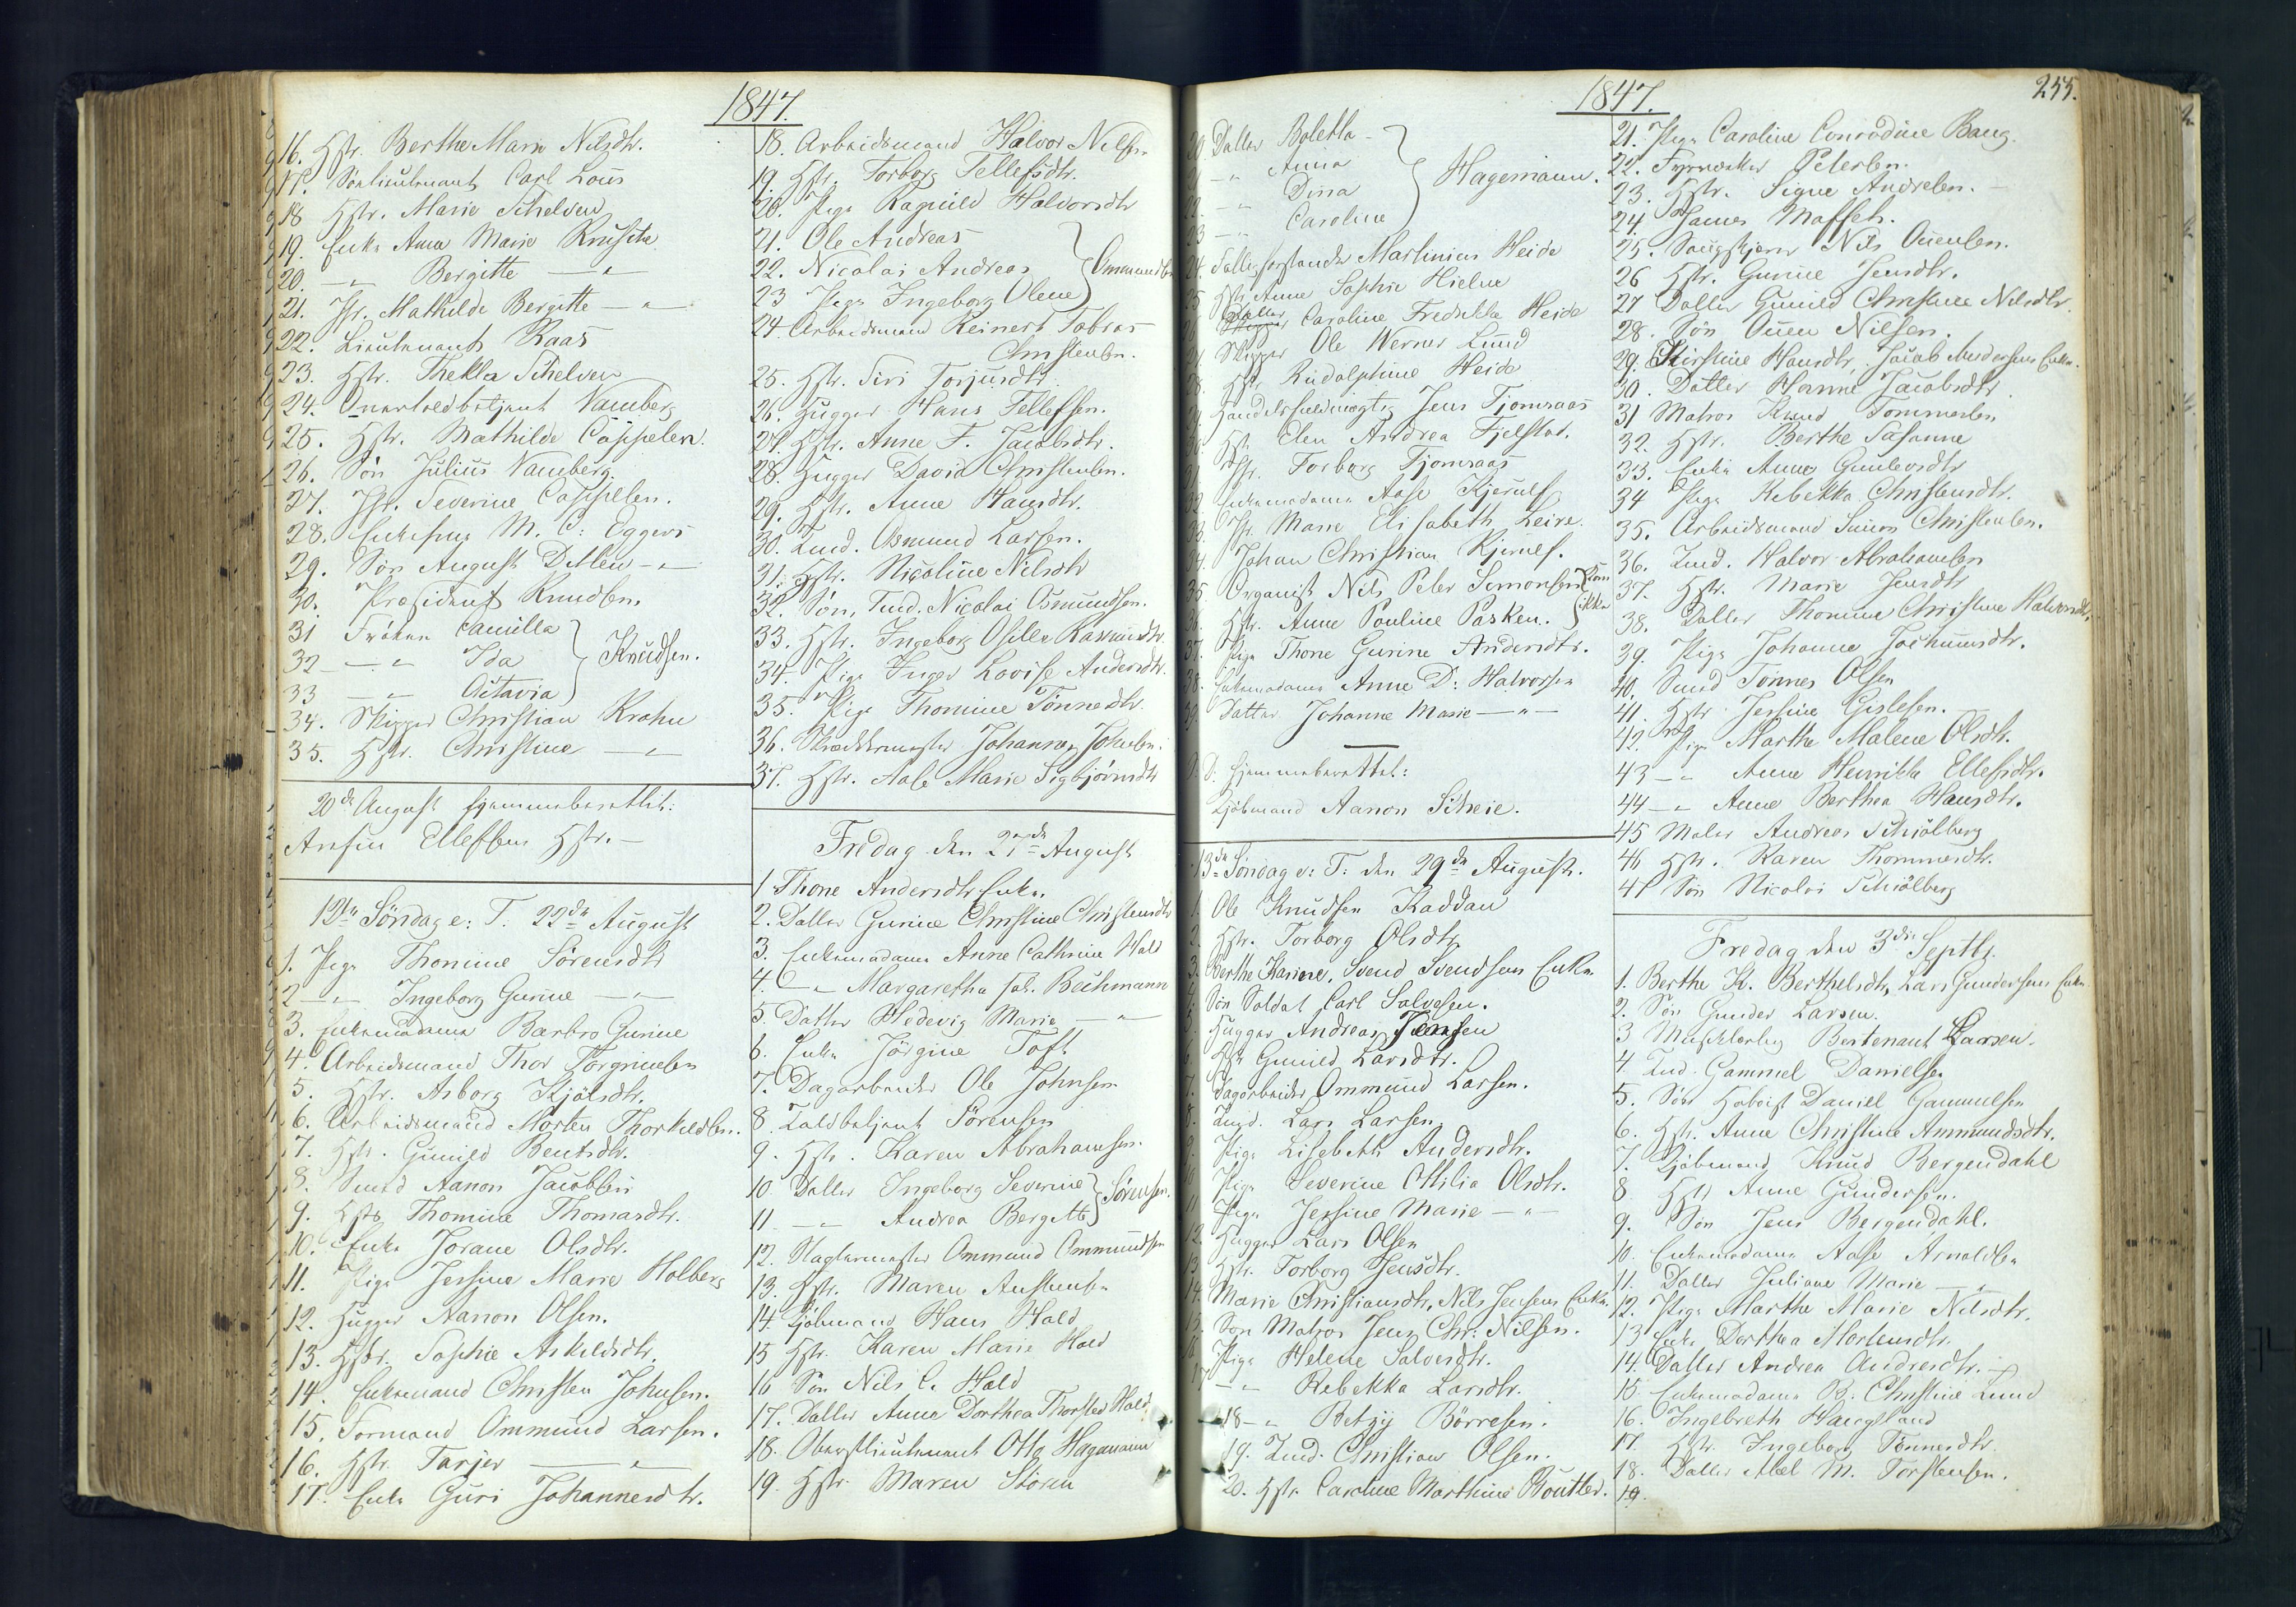 1847.
16. Hstr. Berthe Marn Nilsdtr.
17. Sönlieutenant Carl Lous
18 Hstr. Marie Schelven
19. Enke Anna Marie Krusche
20. — " Bergitte — " —
21. Jfr. Mathilde Bergitte — " —
22. Lieutenant Raas
23. Hstr. Thekla Schelven
24. Qvarteerbetjent Vamberg
25. Hstr. Mathilde Cappelen.
26. Sön Julius Vamberg
27. Jfr. Severine Cappelen.
28. Enkefrue M. C: Eggers
29. Sön August Ditlew — " —
30. Præsident Knudsen
31 Fröken Camilla
32 — " Ida } Knudsen.
33 — " Octavia
34. Skipper Christian Krohn
35. Hstr. Christine — " —
20de August hjemmeberettet:
Ansten Ellefsens Hstr. —
12te Söndag e: T. 22de August
1. Pige Thomine Sörensdtr
2 — " Ingeborg Gurine — " —
3. Enkemadame Barbro Gurine
4. Arbeidsmand Thor Torgrimsen
5. Hstr. Asborg Kjölsdtr.
6. Arbeidsmand Morten Thorkildsen.
7. Hstr. Gunild Bentsdtr.
8. Smed Aanon Jacobsen
9. Hstr Thomine Thomasdtr.
10. Enke Jorane Olsdtr.
11. Pige Jessine Marie Holberg
12. Hugger Aanon Olsen.
13. Hstr. Sophie Askildsdtr.
14. Enkemand Christen Johnsen.
15. Formand Ommund Larsen.
16. Hstr. Tarjer — " —
17. Enke Guri Johannesdtr.
18. Arbeidsmand Halvor Nilsen
19. Hstr. Torborg Tellefsdtr.
20. Pige Ragnild Halvorsdtr
21. Ole Andreas
22. Nicolai Andreas } Ommundsen
23 Pige Ingeborg Olene
24 Arbeidsmand Reinert Tobias
Christensen.
25. Hstr. Siri Torjusdtr.
26. Hugger Hans Tellefsen.
27. Hstr. Anne F. Jacobsdtr.
28. Hugger David Christensen.
29. Hstr. Anne Hansdtr.
30. Tmd. Osmund Larsen.
31. Hstr. Nicoline Nilsdtr
32. Sön, Tmd. Nicolai Osmundsen.
33. Hstr. Ingeborg Oselle Rasmusdtr.
34. Pige Inger Lovise Andersdtr.
35. Pige Thomine Tönnesdtr.
36. Skræddermester Johannes Johnsen.
37. Hstr. Aase Marie Sigbjörnsdtr
Fredag den 27de August
1 Thone Andersdtr Enke.
2. Datter Gurine Christine Christensdtr
3. Enkemadame Anne Cathrine Hald
4. — " Margaretha Bechmann
5. Datter Hedevig Marie — " —
6. Enke Jörgine Toft
7. Dagarbeider Ole Johnsen
8. Toldbetjent Sörensen
9. Hstr. Karen Abrahamsen.
10. Datter Ingeborg Severine } Sörensen.
11. — " — Andrea Bergitte
12. Slagtermester Ommund Ommundsen
13. Hstr. Maren Anstensen
14. Kjöbmand Hans Hald
15 Hstr. Karen Marie Hald
16 Sön Nils C. Hald
17. Datter Anne Dorthea Thorsted Hald.
18. Oberstlieutenant Otto Hagemann
19. Hstr. Maren Storm
1847.
255.
20. Datter Boletta
21 — " Anna
22. — " Dina } Hagemann.
23 — " Caroline
24. Fattigforstander Martinius Heide
25. Hstr. Anne Sophie Hielm
26 Datter Caroline Fredrikke Heide
27 Skipper Ole Werner Lund
28. Hstr. Rudolphine Heide
29. Handelsfuldmægtig Jens Tjomsaas
30. Hstr. Elen Andrea Fjelstad.
31. Jfr. Torborg Tjomsaas
32. Enkemadame Aase Kjerulf
33. Jfr. Marie Elisabeth Leire.
34. Johan Christian Kjerulf.
35. Organist Nils Peter Simonsen
36. Hstr. Anne Pouline Pasken.
37. Pige Thone Gurine Andersdtr.
38. Enkemadame Anne D: Halvorsen
39. Datter Johanne Marie — " —
D: D: hjemmeberettet:
Kjöbmand Aanon Scheie.
13de Söndag e: T: den 29de August.
1. Ole Knudsen Kaddan
2. Hstr. Torborg Olsdtr
3. Berthe Karine, Svend Svendsens Enke
4. Sön Soldat Carl Salvesen.
5 Hugger Andreas Jensen
6. Hstr Gunild Larsdtr.
7. Dagarbeider Ommund Larsen.
8. Tmd. Lars Larsen
9. Pige Lisebeth Andersdtr.
10 Pige Severine Ottilia Olsdtr.
11 Pige Jessine Marie — " —
12. Hugger Lars Olsen
13 Hstr. Torborg Jensdtr.
14. Marie Christiansdtr, Nils Jensens Enke.
15. Sön Matros Jens Chr: Nilsen.
16 Pige Helene Salvesdtr.
17 — " Rebekka Larsdtr.
18 — " Betzy Börresen.
19. Tmd. Christian Olsen.
20. Hstr. Caroline Marthine Boutler.
21. Pige Caroline Conradine Bang.
22. Fyrværker Petersen.
23. Hstr. Signe Andresen.
24. James Moffet.
25. Saugskjærer Nils Ouensen.
26 Hstr. Gurine Jensdtr.
27 Datter Gunild Christine Nilsdtr
28. Sön Ouen Nilsen.
29. Kirstine Hansdtr, Jacob Andersens Enke.
30. Datter Hanne Jacobsdtr.
31 Matros Knud Tommesen
32. Hstr. Berthe Sasanne
33. Enke Anne Gunlevsdtr
34 Pige Rebekka Christensdtr.
35. Arbeidsmand Simon Christensen.
36. Tmd. Halvor Abrahamsen
37. Hstr. Marie Jensdtr
38. Datter Thomine Christine Halvorsdtr.
39. Pige Johanne Jochumsdtr.
40. Smed Tönnes Olsen
41. Hstr. Jessine Gislesen.
42. Pige Marthe Malene Olsdtr.
43 — " Anne Henrikke Ellefsdtr.
44 — " Anne Berthea Hansdtr.
45 Maler Andreas Schiölberg
46 Hstr. Karen Thommesdtr.
47 Sön Nicolai Schiölberg
Fredag den 3die Septbr.
1. Berthe K. Berthelsdtr, Lars Gundersens Enke.
2. Sön Gunder Larsen.
3 Bertenant Larsen.
4. Tmd. Gammel Danielsen
5. Sön Hoboist Daniel Gammelsen
6. Hstr. Anne Christine Ammundsdtr.
7. Kjöbmand Knud Bergendahl
8 Hstr Anne Gundersen.
9. Sön Jens Bergendahl.
10. Enkemadame Aase Arnoldsen
11. Datter Juliane Marie — " —
12. Pige Marthe Marie Nilsdtr.
13 Enke Dorthea Mortensdtr.
14. Datter Andrea Andresdtr.
15. Enkemadame B. Christine Lund
16. Ingebreth Haugeland
17. Hstr. Ingeborg Tönnesdtr.
18. Datter Abel M. Torstensen.
19.